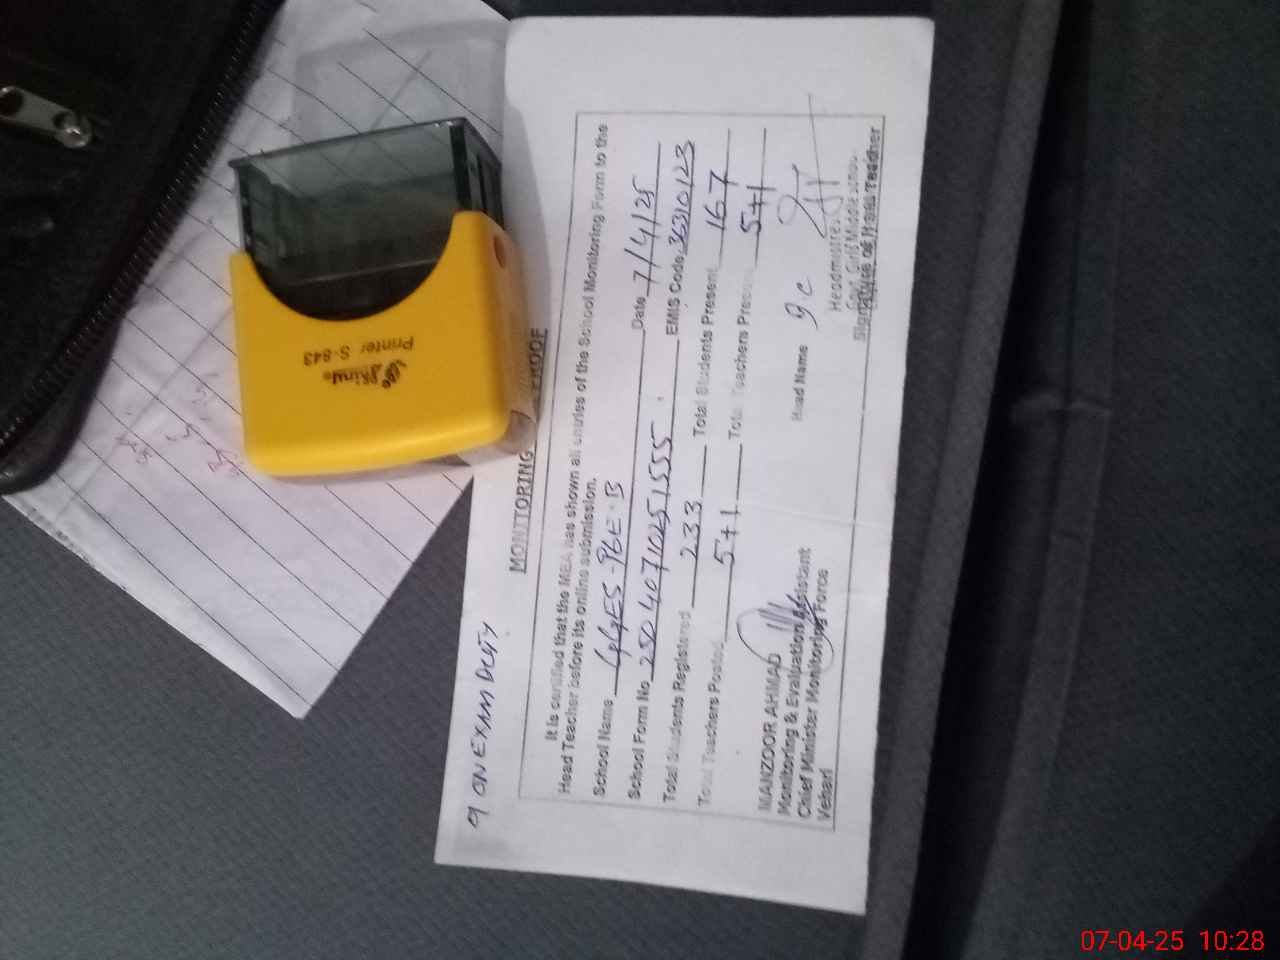 9 ON EXAM DUTY
MONITORING PROOF
It is certified that the MEA has shown all entries of the School Monitoring Form to the
Head Teacher before its online submission.
School Name GGES-96E.B Date 7/4/25
School Form No 25040710251555 EMIS Code: 36310123
Total Students Registered 233 Total Students Present 167
Total Teachers Posted 5+1 Total Teachers Present 5+1
MANZOOR AHMAD
Monitoring & Evaluation Assistant
Chief Minister Monitoring Force
Vehari
Head Name
Headmistress
Govt. Girls Middle School
Signature of Head Teacher
Shiny
Printer S-843
07-04-25 10:28